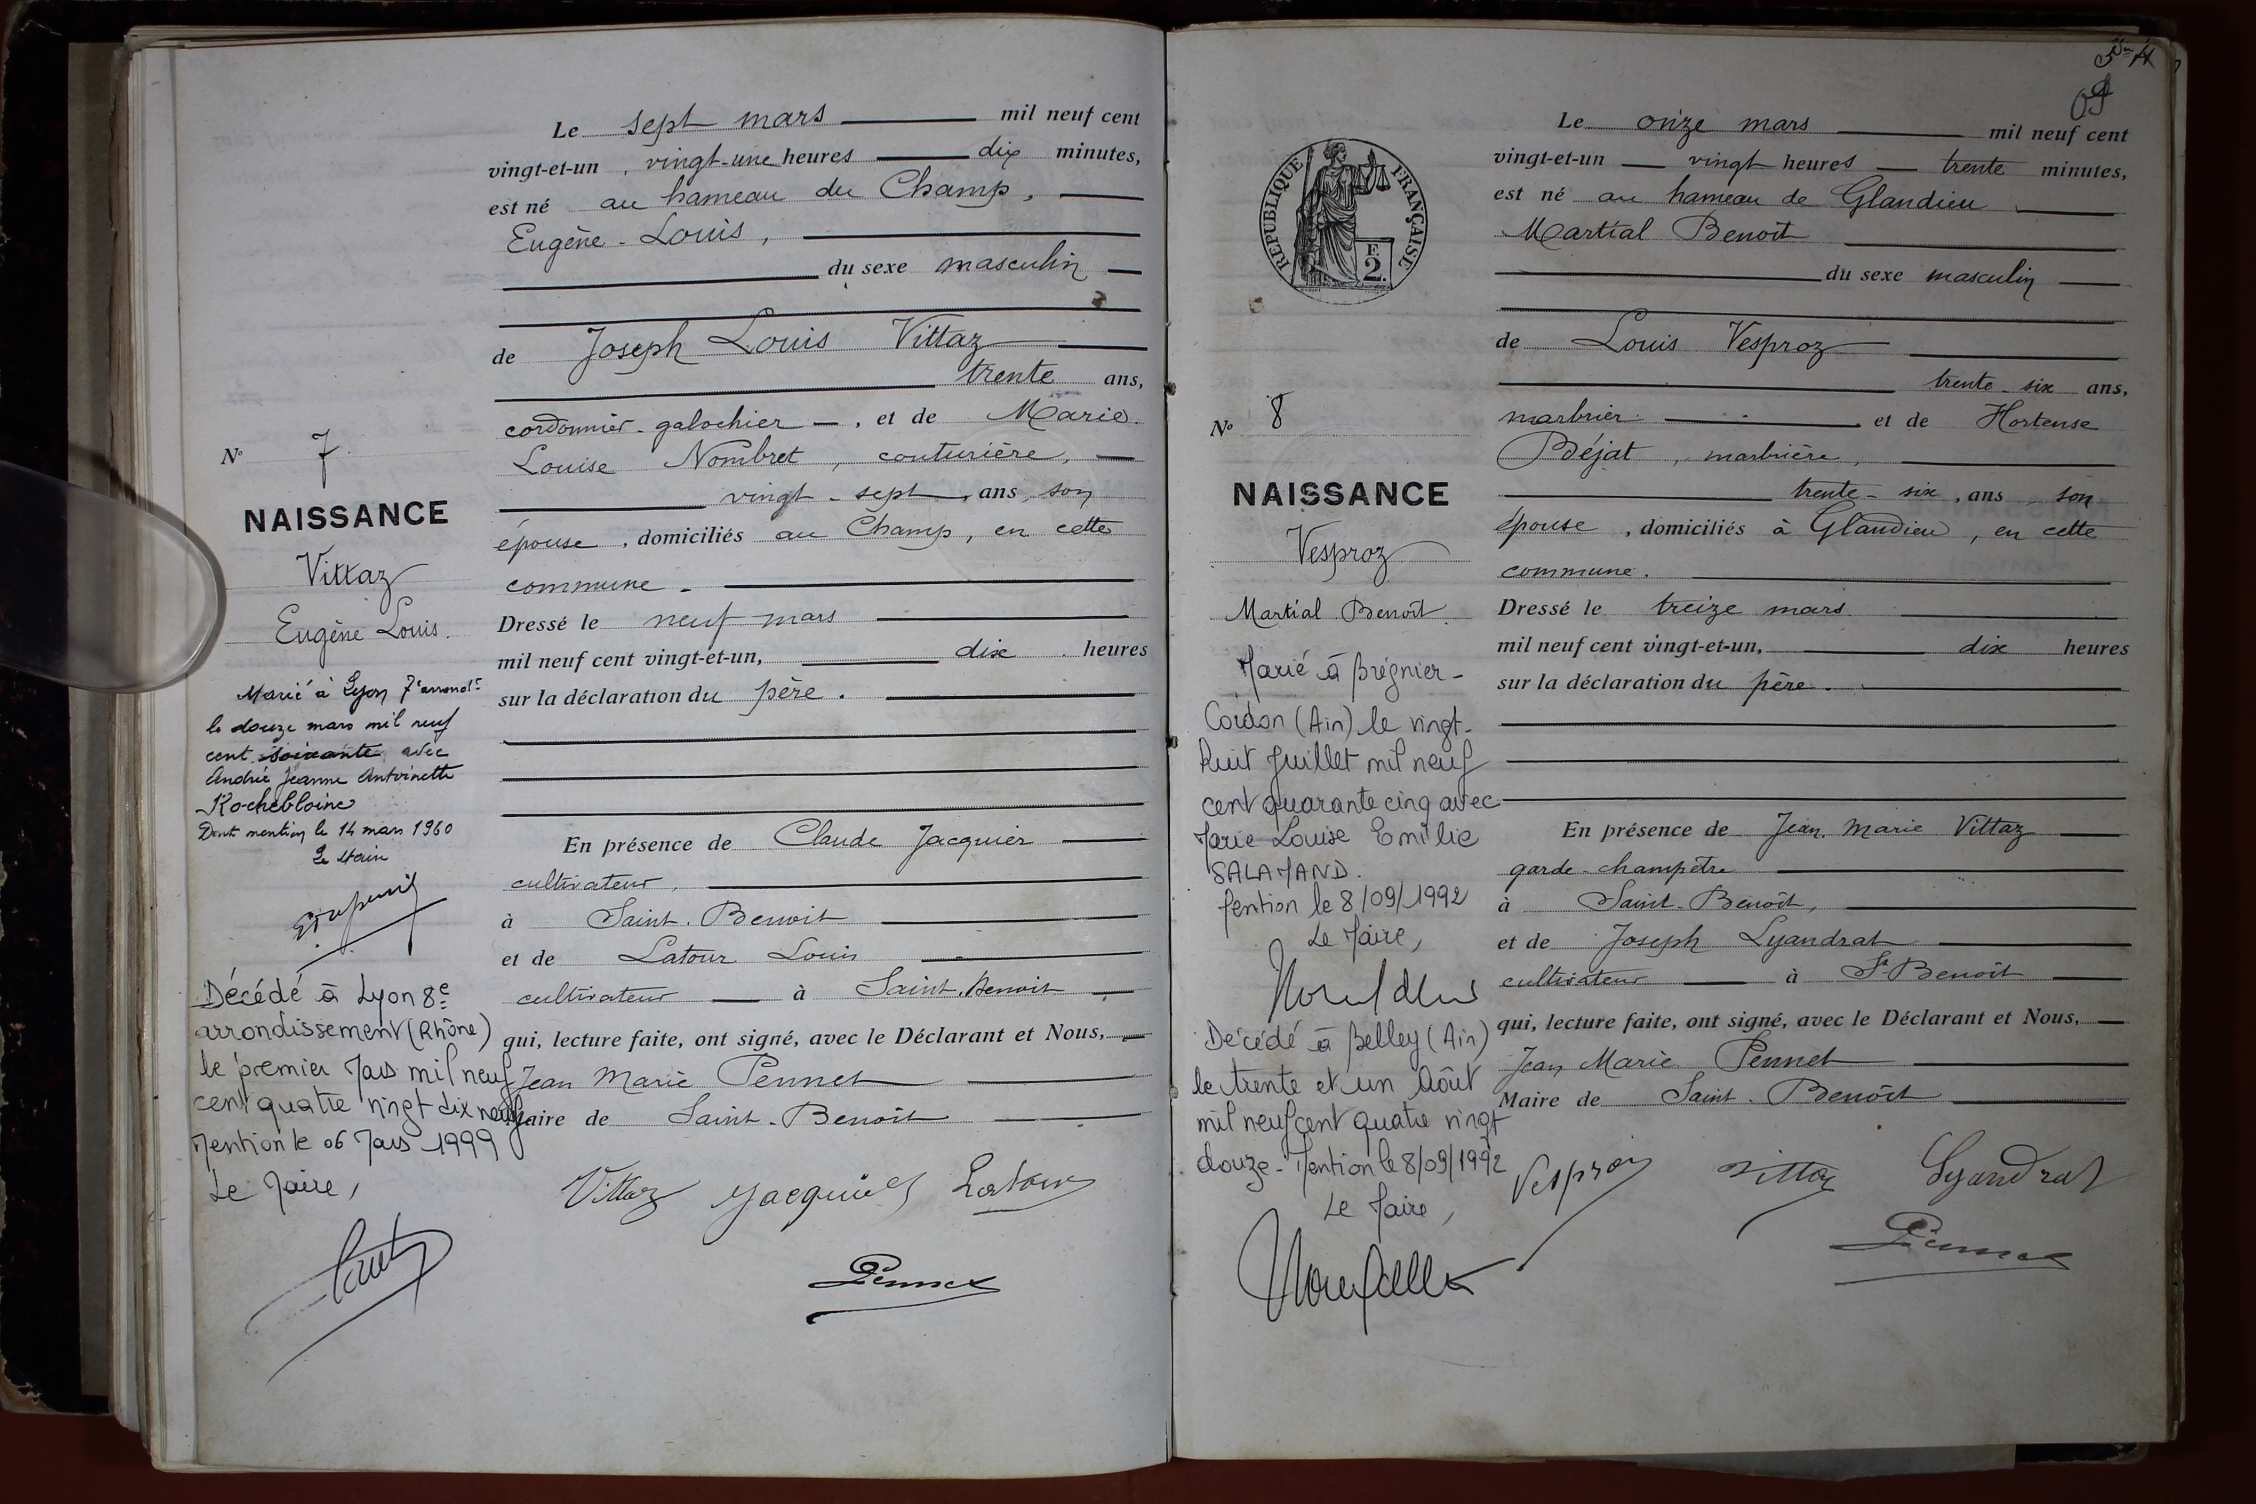 Le sept mars mil neuf cent
vingt-et-un, vingt-une heures dix minutes,
est né au hameau du Champ,
Eugène-Louis,
du sexe masculin
de Joseph Louis Vittaz
trente ans,
cordonnier-galochier, et de Marie
Louise Nombret, couturière,
vingt-sept, ans, son
épouse, domiciliés au Champ, en cette
commune.
Dressé le neuf mars
mil neuf cent vingt-et-un, dix heures
sur la déclaration du père.
En présence de Claude Jacquier
cultivateur,
à Saint-Benoit
et de Latour Louis
cultivateur à Saint-Benoit
qui, lecture faite, ont signé, avec le Déclarant et Nous,
Jean Marie Pennet
Maire de Saint-Benoît
Vittaz Jacquier Latour
Pennet
N° 7
NAISSANCE
Vittaz
Eugène Louis.
Marié à Lyon 7e arrondt
le douze mars mil neuf
cent soixante avec
Andrée Jeanne Antoinette
Rochebloine
Dont mention le 14 mars 1960
Le Maire
Décédé à Lyon 8e
arrondissement (Rhône)
le premier Mars mil neuf
cent quatre vingt dix neuf
Mention le 06 Mars 1999
Le Maire,
Le onze mars mil neuf cent
vingt-et-un vingt heures trente minutes,
est né au hameau de Glandieu
Martial Benoît
du sexe masculin
de Louis Vesproz
trente-six ans,
marbrier et de Hortense
Béjat, marbrière,
trente-six, ans son
épouse, domiciliés à Glandieu, en cette
commune.
Dressé le treize mars
mil neuf cent vingt-et-un, dix heures
sur la déclaration du père.
En présence de Jean Marie Vittaz
garde-champêtre
à Saint-Benoît,
et de Joseph Lyandrat
cultivateur à St Benoît
qui, lecture faite, ont signé, avec le Déclarant et Nous,
Jean Marie Pennet
Maire de Saint-Benoît
Vesproz Vittaz Lyandrat
Pennet
REPUBLIQUE FRANÇAISE
F.
2.
N° 8
NAISSANCE
Vesproz
Martial Benoît.
Marié à Brégnier-
Cordon (Ain) le vingt-
huit Juillet mil neuf
cent quarante cinq avec
Marie Louise Emilie
SALAMAND.
Mention le 8/09/1992
Le Maire,
Décédé à Belley (Ain)
le trente et un Août
mil neuf cent quatre vingt
douze - Mention le 8/09/1992
Le Maire,